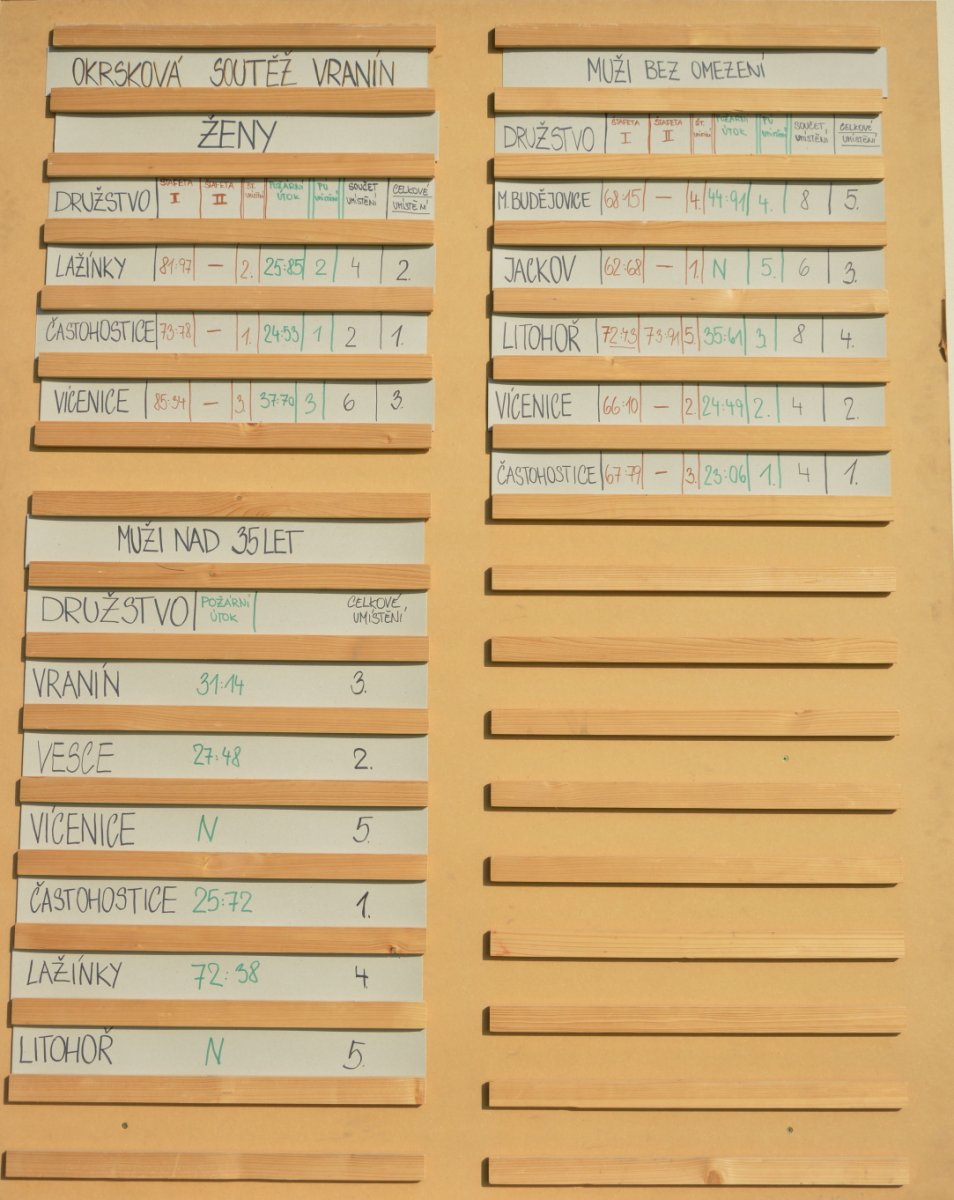 OKRSKOVÁ SOUTĚŽ VRANÍN
ŽENY
DRUŽSTVO ŠTAFETA I ŠTAFETA II ŠT. umístění POŽÁRNÍ ÚTOK PÚ umístění SOUČET UMÍSTĚNÍ CELKOVÉ UMÍSTĚNÍ
LAŽÍNKY 81:97 — 2. 25:85 2 4 2.
ČASTOHOSTICE 73:78 — 1. 24:53 1 2 1.
VÍCENICE 85:34 — 3. 37:70 3 6 3.
MUŽI NAD 35 LET
DRUŽSTVO POŽÁRNÍ ÚTOK CELKOVÉ UMÍSTĚNÍ
VRANÍN 31:14 3.
VESCE 27:48 2.
VÍCENICE N 5.
ČASTOHOSTICE 25:72 1.
LAŽÍNKY 72:38 4
LITOHOŘ N 5.
MUŽI BEZ OMEZENÍ
DRUŽSTVO ŠTAFETA I ŠTAFETA II ŠT. umístění POŽÁRNÍ ÚTOK PÚ umístění SOUČET UMÍSTĚNÍ CELKOVÉ UMÍSTĚNÍ
M. BUDĚJOVICE 68:15 — 4. 44:91 4. 8 5.
JACKOV 62:68 — 1. N 5. 6 3.
LITOHOŘ 72:43 73:91 5. 35:61 3. 8 4.
VÍCENICE 66:10 — 2. 24:49 2. 4 2.
ČASTOHOSTICE 67:79 — 3. 23:06 1. 4 1.